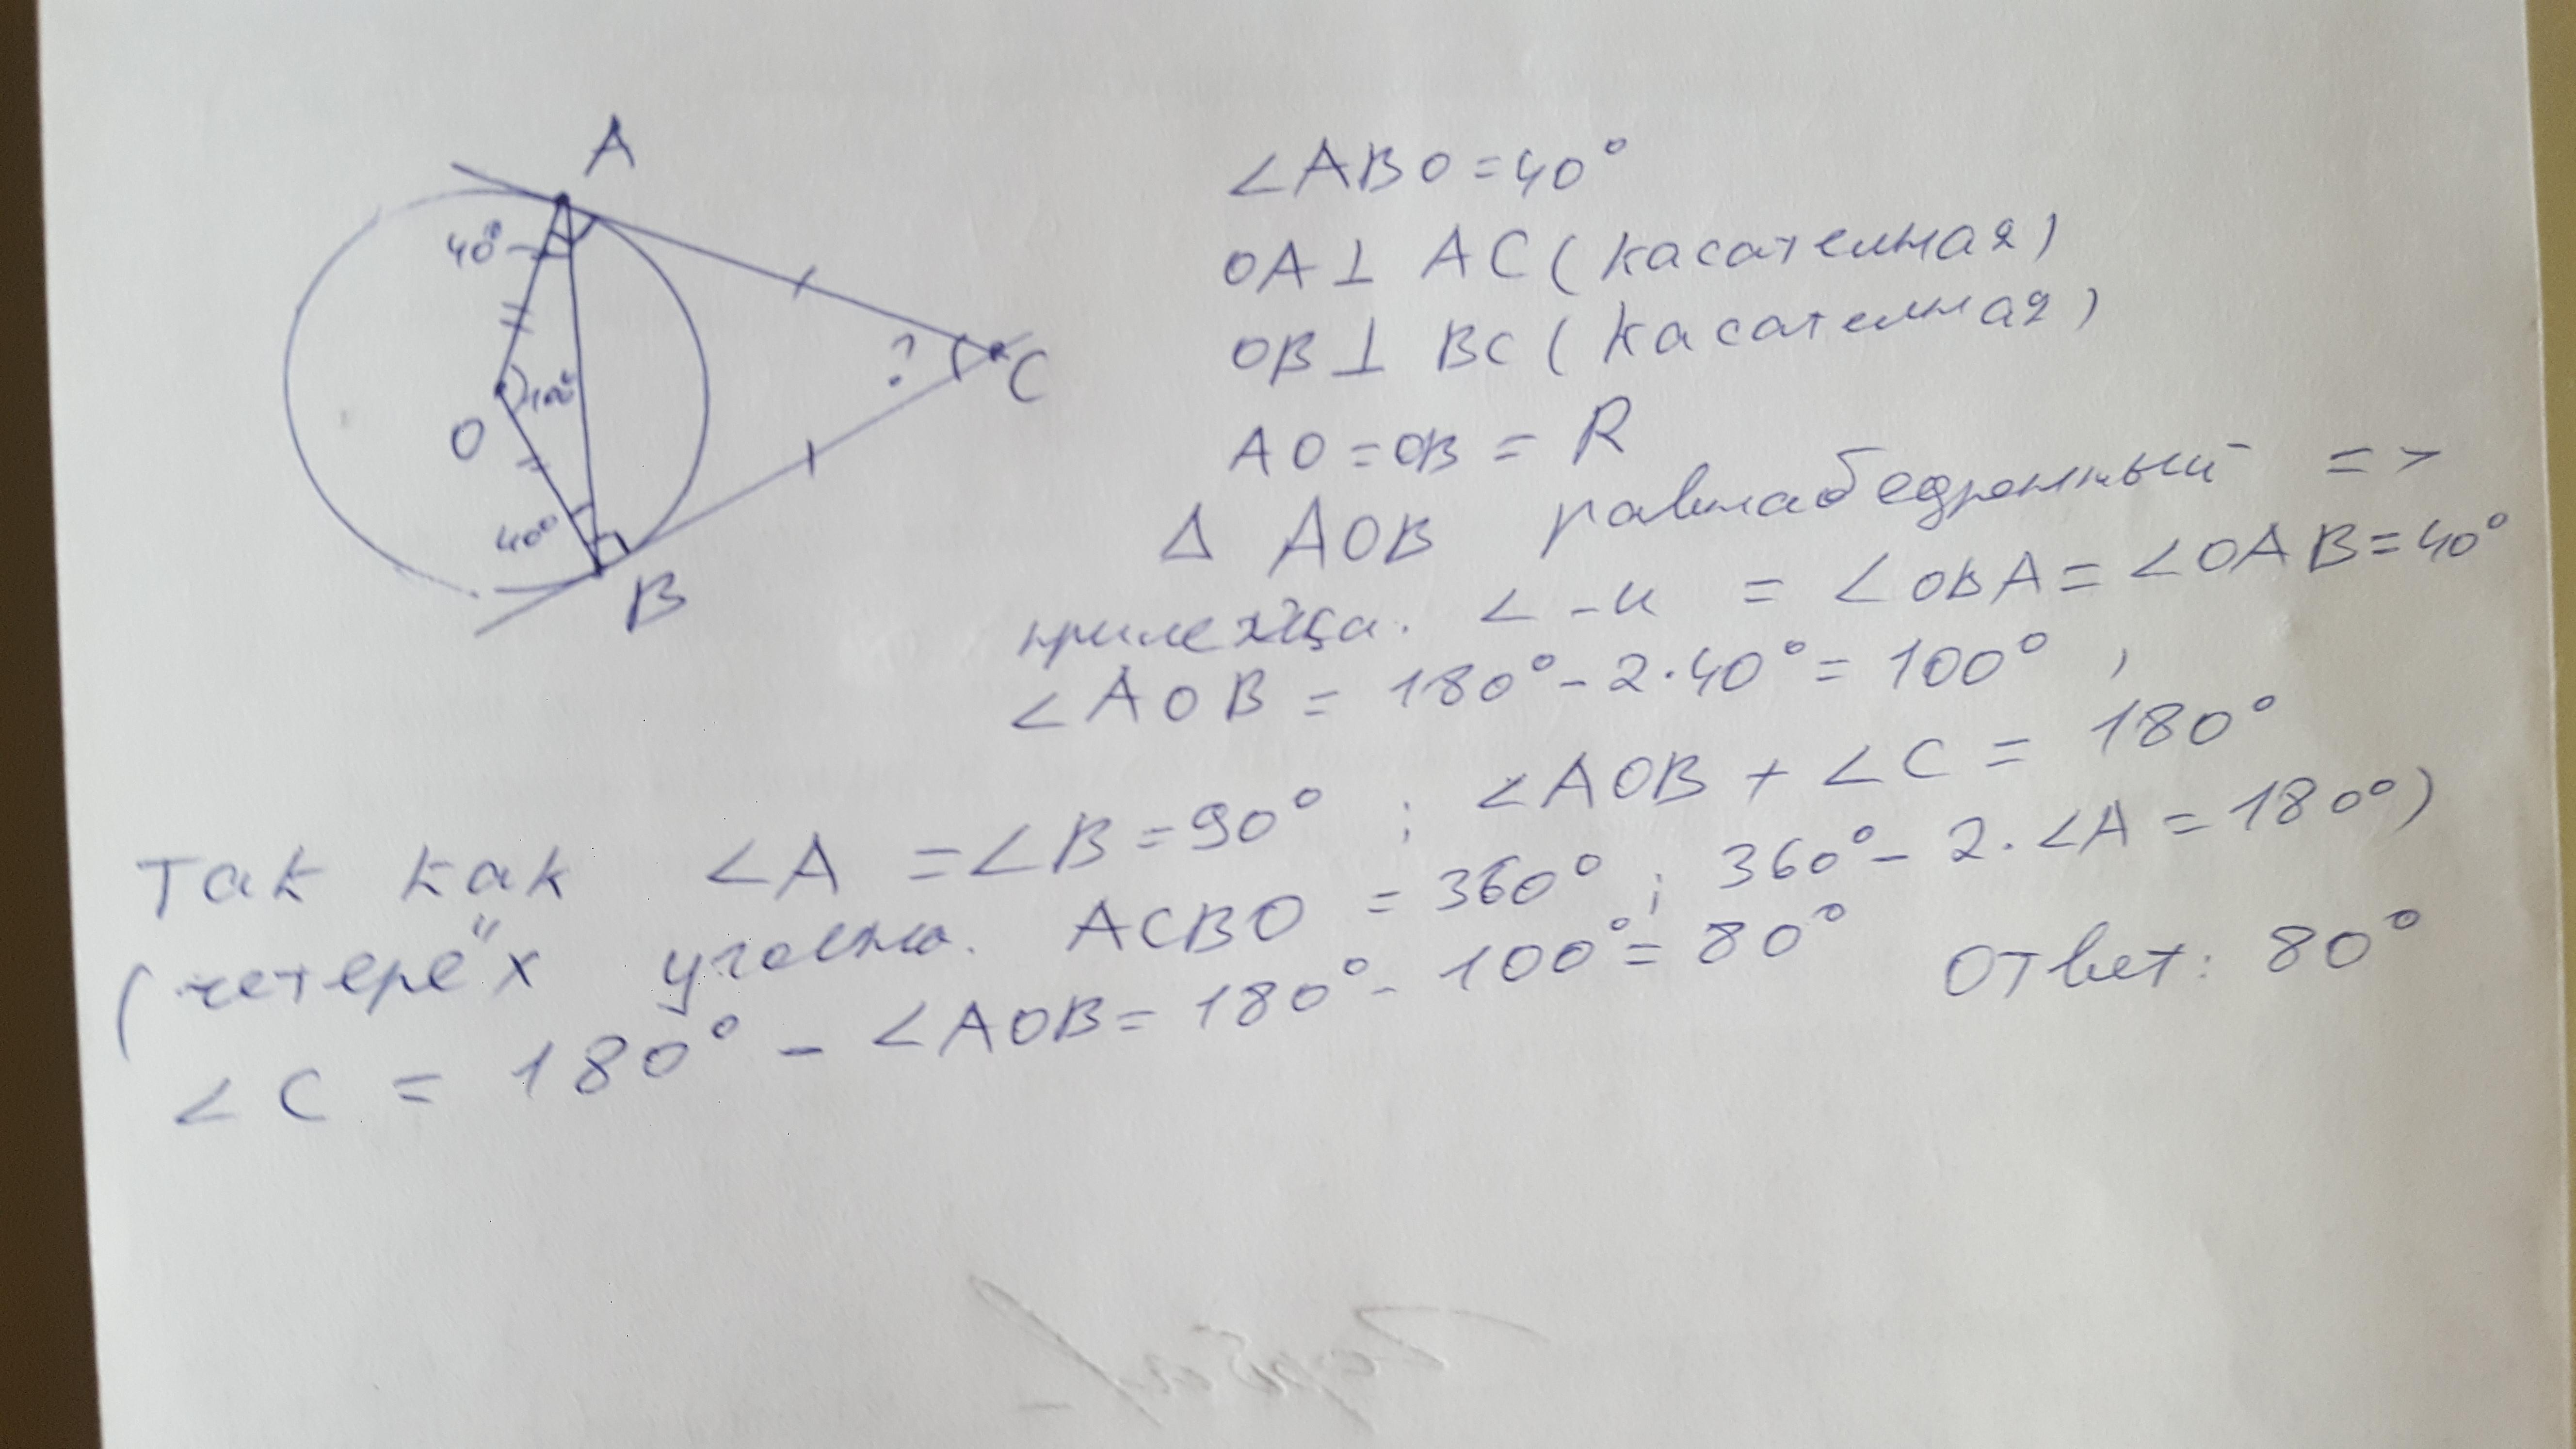 A
40°
O
100°
40°
B
?
C
∠ABO=40°
OA⊥ AC (касательная)
OB⊥ BC (касательная)
AO=OB = R
Δ AOB равнабедренный =>
прилежща. ∠-и = ∠OBA = ∠OAB=40°
∠AOB = 180°-2·40°= 100° ,
Так как ∠A =∠B=90° ; ∠AOB + ∠C = 180°
(четерёх угольн. ACBO =360° ; 360°- 2·∠A =180°)
∠C = 180° - ∠AOB= 180°- 100°= 80° Ответ: 80°